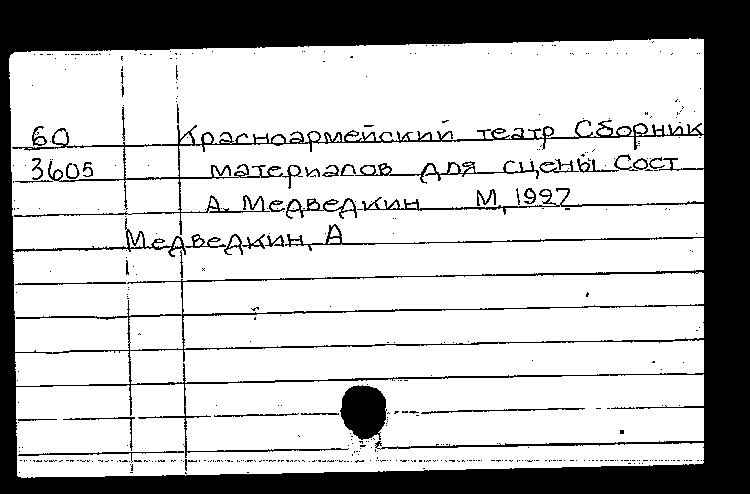 60 Красноармейский театр Сборник
3605 материалов для сцены Сост
А. Медведкин М, 1927
Медведкин, А